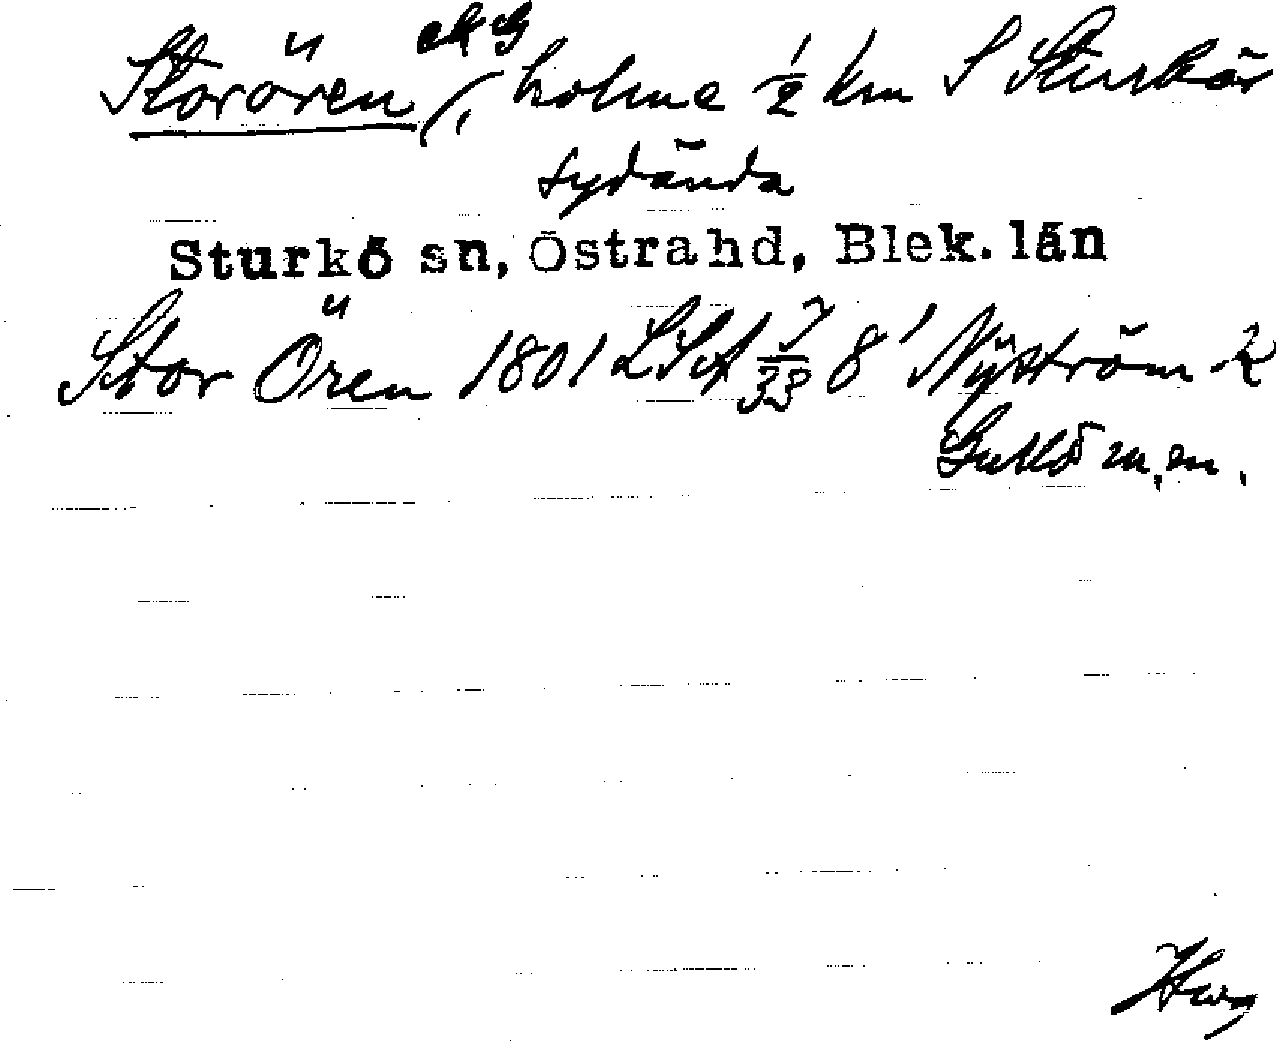 Storören ek G, holme 1/2 km S Sturkös
sydända
Sturkö sn, Östra hd, Blek. län
Stor Ören 1801 LSA 7/33 8' Nyström k
m.m.